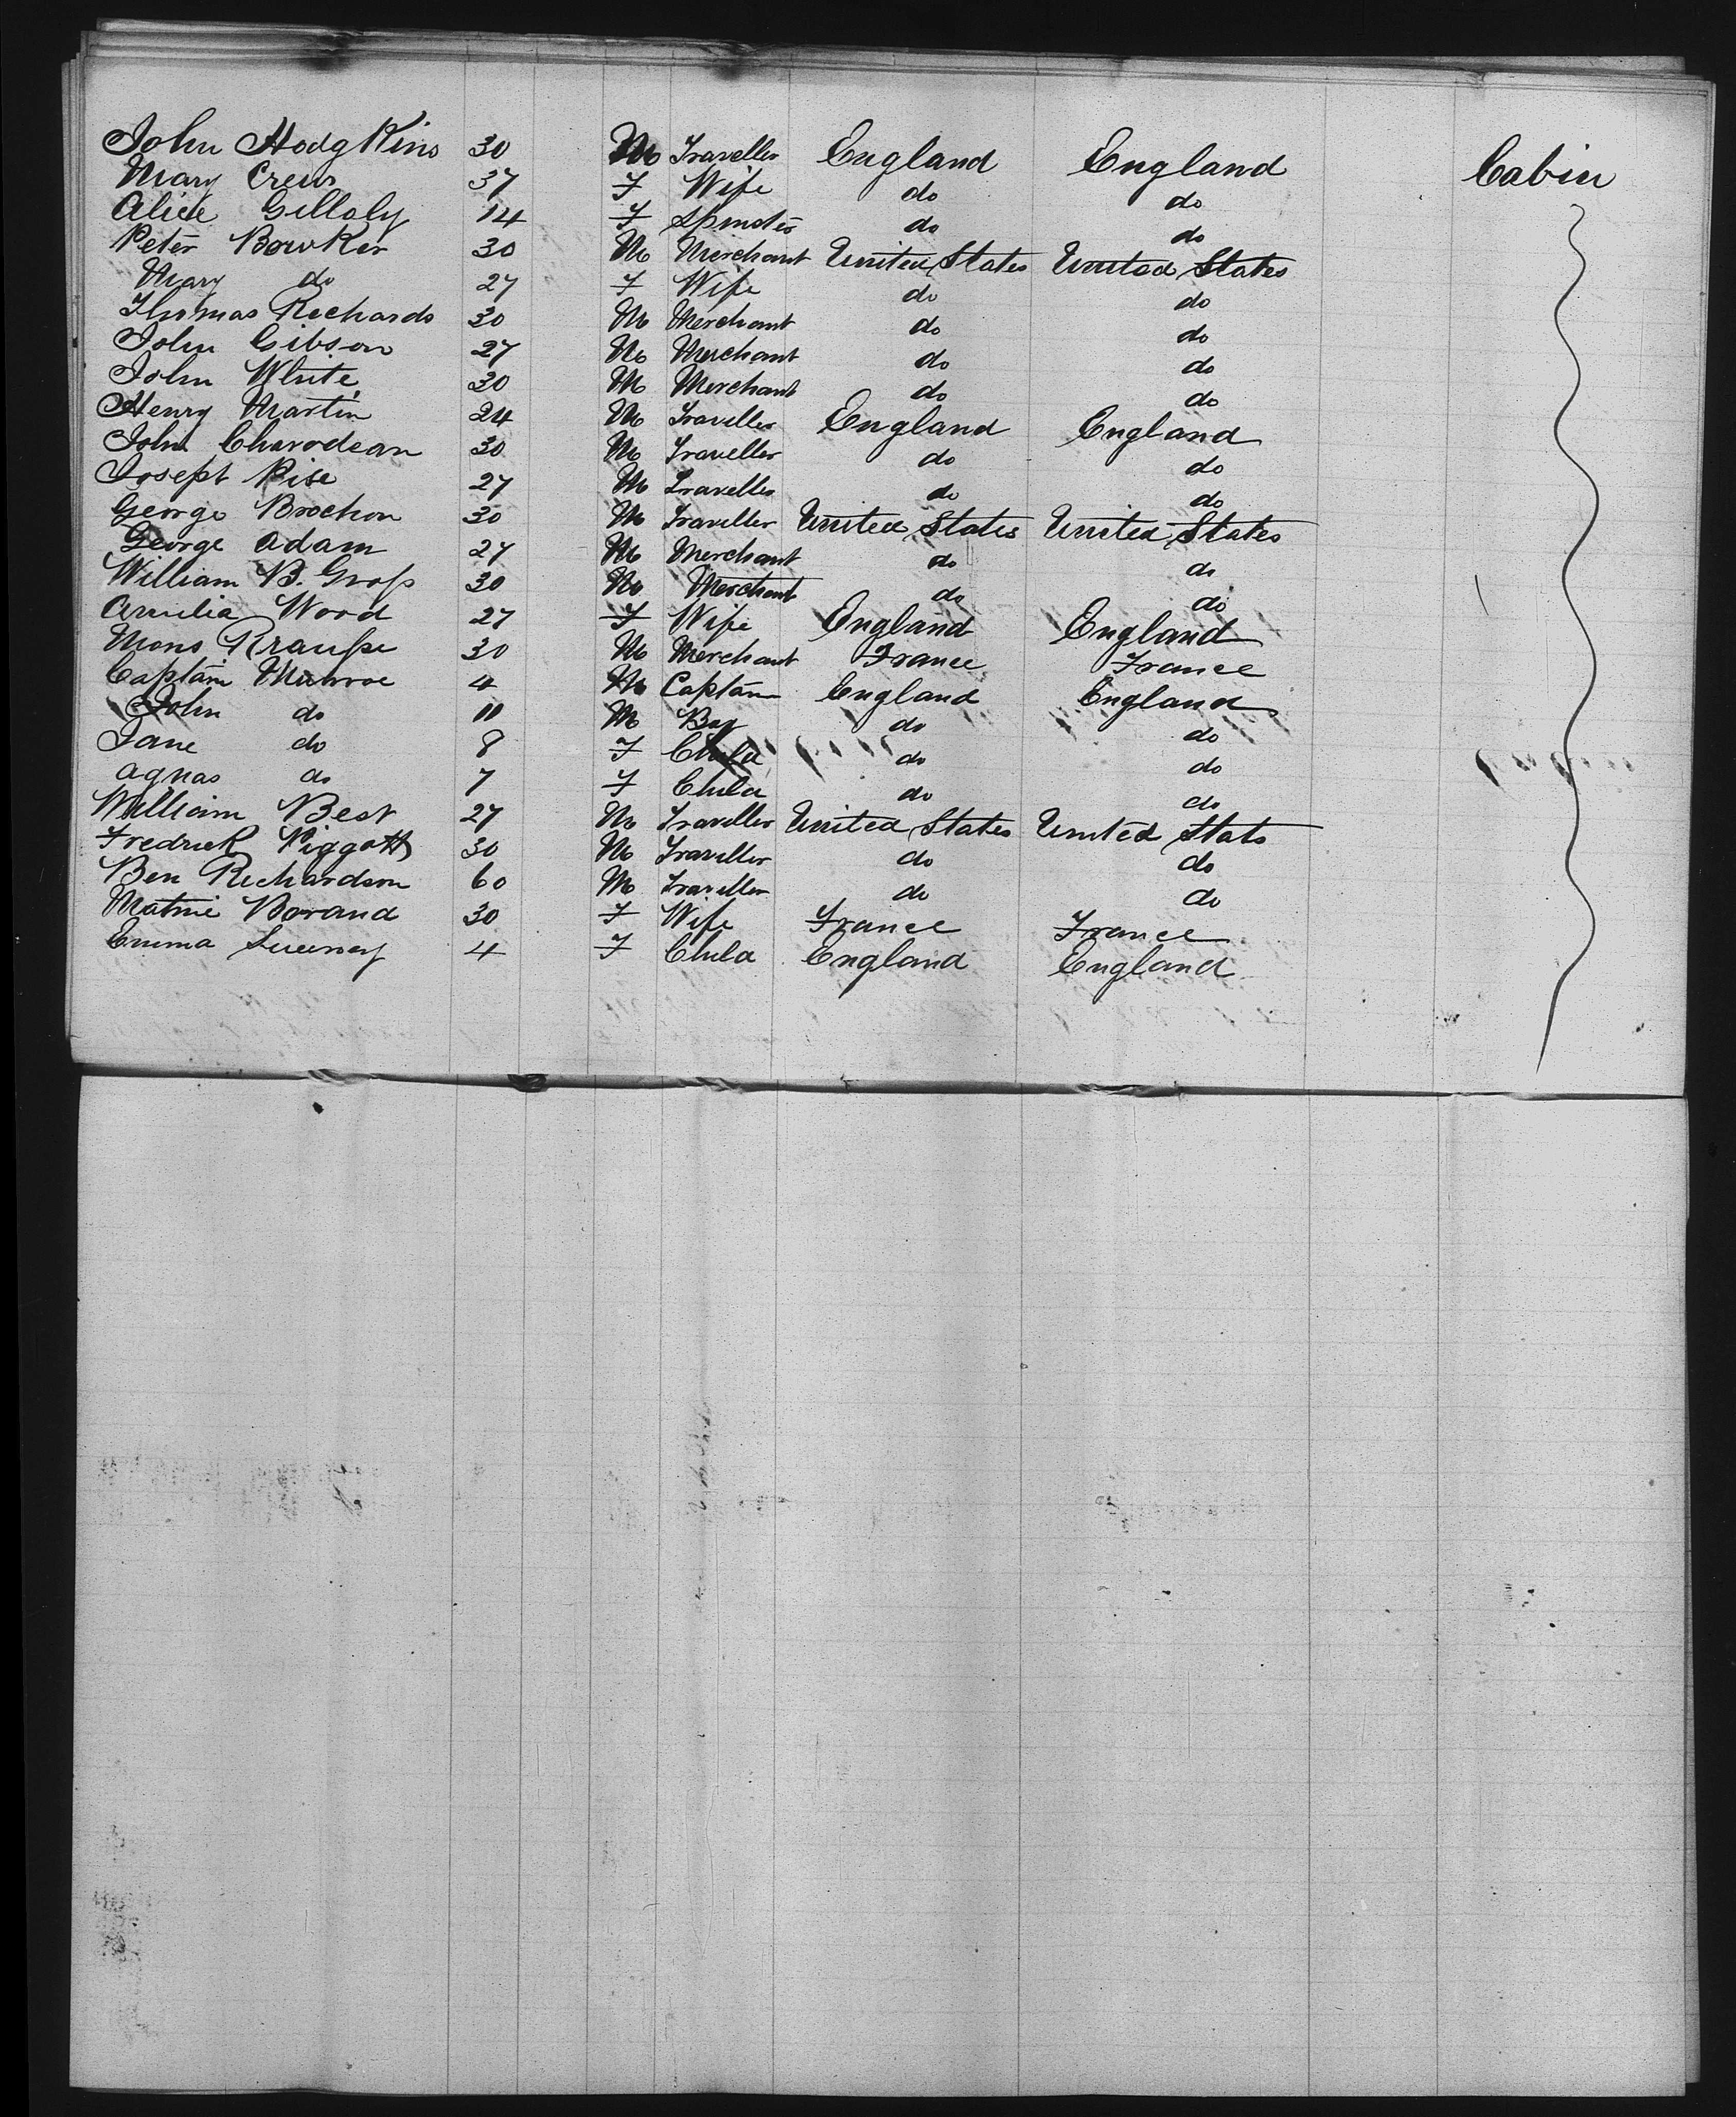 John Hodgkins 30 M Traveller England England Cabin
Mary Crews 37 F Wife do do
Alice Gilloly 14 F Spinster do do
Peter Bowker 30 M Merchant United States United States
Mary do 27 F Wife do do
Thomas Richards 30 M Merchant do do
John Gibson 27 M Merchant do do
John White 30 M Merchant do do
Henry Martin 24 M Traveller England England
John Charodean 30 M Traveller do do
Joseph Rise 27 M Traveller do do
George Brochon 30 M Traveller United States United States
George Adam 27 M Merchant do do
William B. Gross 30 M Merchant do do
Amelia Wood 27 F Wife England England
Mons Krausse 30 M Merchant France France
Captain Munroe 4 M Captain England England
John do 11 M Boy do do
Jane do 8 F Child do do
Agnas do 7 F Child do do
William Best 27 M Traveller United States United Stats
Fredrick Piggott 30 M Traveller do do
Ben Richardson 60 M Traveller do do
Borand 30 F Wife France France
Emma Sweeney 4 F Child England England